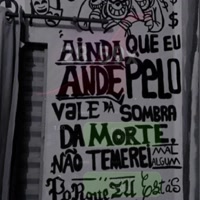 "AINDA QUE EU
ANDE PELO
VALE DA SOMBRA
DA MORTE.
NÃO TEMEREI MAL ALGUM
PORQUE TU ESTÁS